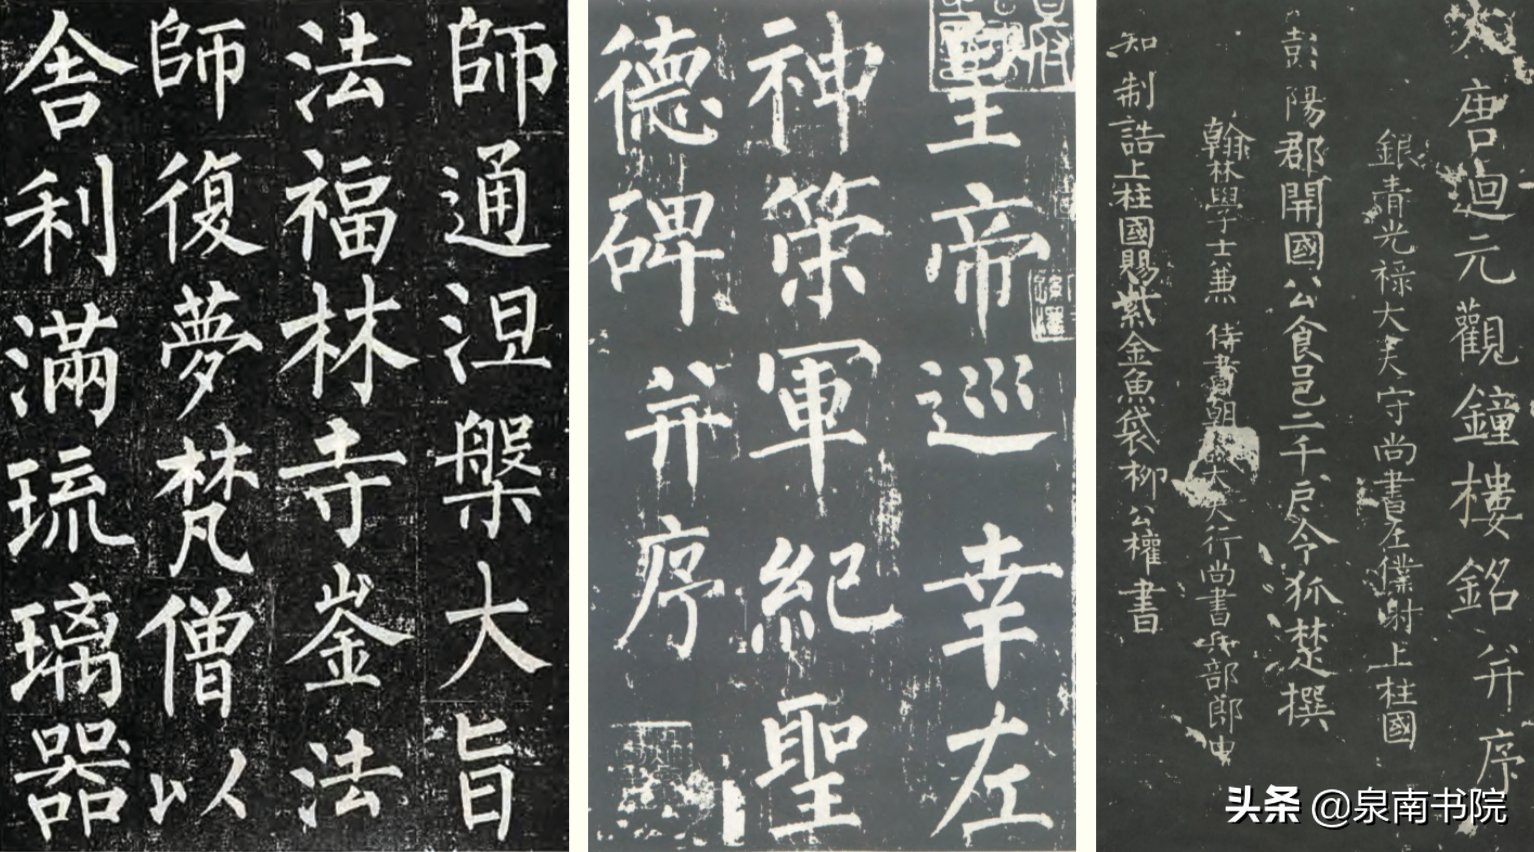 師通涅槃大旨
法福林寺崟法
師復夢梵僧以
舍利滿琉璃器
皇帝巡幸左
神策軍紀聖
德碑并序
大唐迴元觀鐘樓銘并序
銀青光祿大夫守尚書左僕射上柱國
彭陽郡開國公食邑二千戶令狐楚撰
翰林學士兼侍書朝大夫行尚書兵部郎中
知制誥上柱國賜紫金魚袋柳公權書
头条 @泉南书院